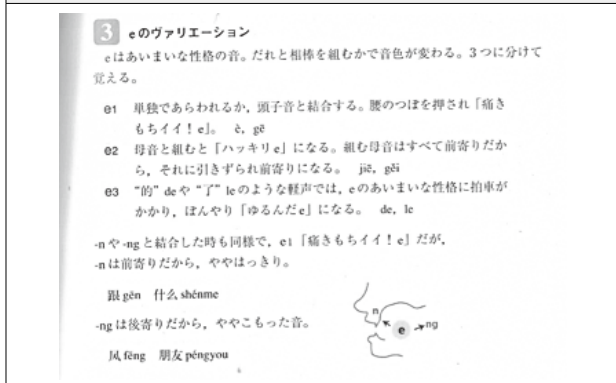 3 eのヴァリエーション
eはあいまいな性格の音。だれと相棒を組むかで音色が変わる。3つに分けて
覚える。
e1 単独であらわれるか，頭子音と結合する。腰のつぼを押され「痛き
もちイイ！e」。 è, gē
e2 母音と組むと「ハッキリe」になる。組む母音はすべて前寄りだか
ら，それに引きずられ前寄りになる。 jiē, gěi
e3 “的” deや “了” leのような軽声では，eのあいまいな性格に拍車が
かかり，ぼんやり「ゆるんだe」になる。 de, le
-nや-ngと結合した時も同様で，e1「痛きもちイイ！e」だが，
-nは前寄りだから，ややはっきり。
跟 gēn 什么 shénme
-ngは後寄りだから，ややこもった音。
风 fēng 朋友 péngyou
n e ng